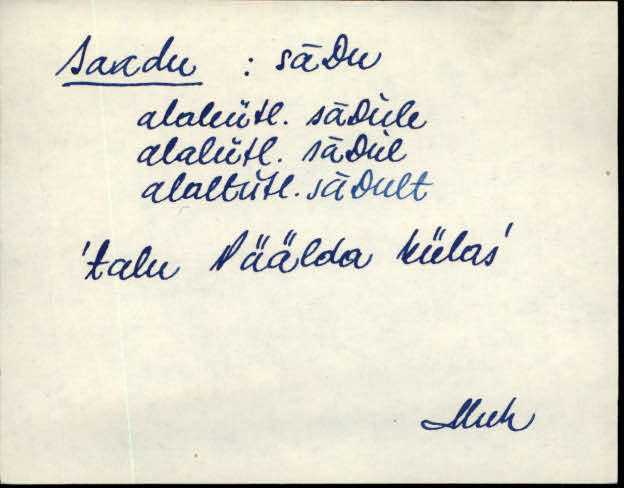 Saadu : sāDu
alaleütl. sāDule
alalütl. sāDul
alaltütl. sāDult
'talu Nään̄lda külas'
Muh